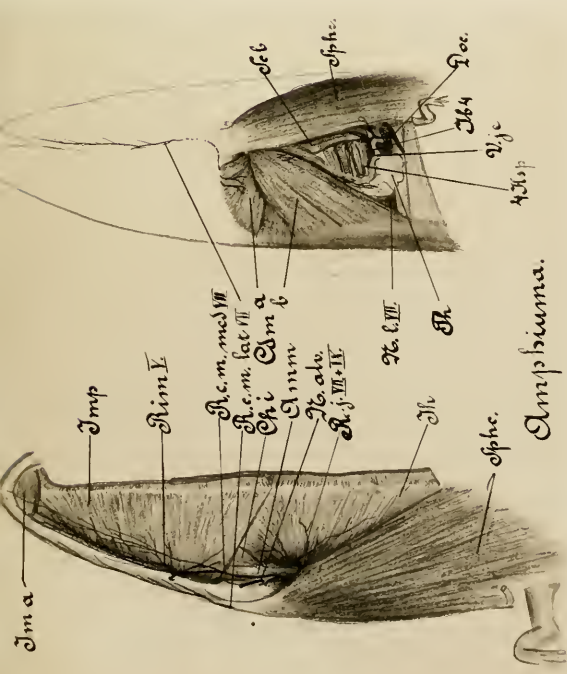 Ima
Imp
Rim V.
R.c.m. med VII
R.c.m. lat VII
Chi
Amm
N. alv.
R.j. VII+IX
Ih
Sphc.
Cdm a
b
Sphc.
Ib4
Vjc
4Ksp
N.l.VII.
Amphiuma.